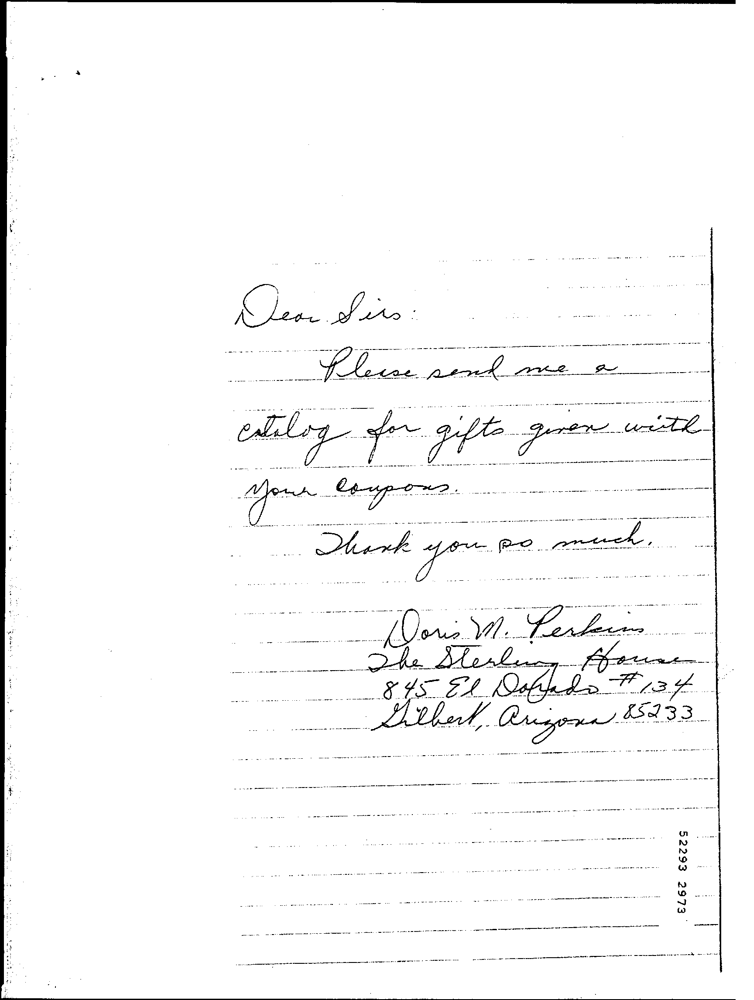 Dear Sirs:
Please send me a
catalog for gifts given with
your coupons.
Thank you so much.
Doris M. Perkins
The Sterling House
845 El Dorado #134
Gilbert, Arizona 85233
52293 2973